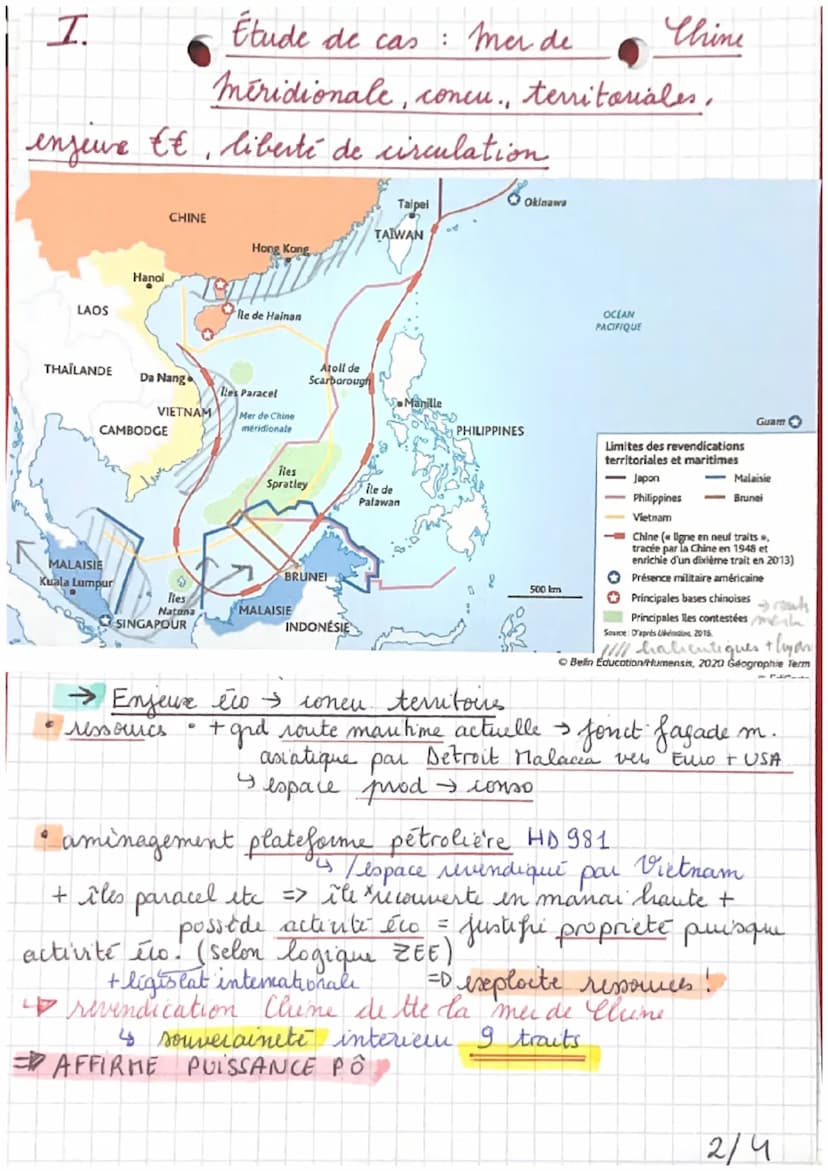 I. Étude de cas : Mer de Chine
Méridionale, concu., territoriales,
enjeux €€, liberté de circulation
Taipei
Okinawa
CHINE
TAÏWAN
Hong Kong
Hanoï
Île de Hainan
LAOS
OCÉAN
PACIFIQUE
THAÏLANDE
Da Nang
Atoll de
Scarborough
Îles Paracel
Manille
VIETNAM
Mer de Chine
méridionale
Guam
CAMBODGE
PHILIPPINES
Îles
Spratley
Île de
Palawan
MALAISIE
Kuala Lumpur
BRUNEI
Îles
Natuna
MALAISIE
SINGAPOUR
INDONÉSIE
500 km
Limites des revendications
territoriales et maritimes
Japon
Malaisie
Philippines
Brunei
Vietnam
Chine (« ligne en neuf traits »,
tracée par la Chine en 1948 et
enrichie d'un dixième trait en 2013)
Présence militaire américaine
Principales bases chinoises
Principales îles contestées
Source : D'après Libération, 2016.
halieutiques + hydro
© Belin Éducation/Humensis, 2020 Géographie Term
→ Enjeux éco → concu territoires
• ressources • + grd route maritime actuelle → fonct façade m.
asiatique par Détroit Malacca vers Euro + USA
↳ espace prod → conso
• aménagement plateforme pétrolière HD 981
↳ / espace revendiqué par Vietnam
+ îles paracel etc => île recouverte en marée haute +
possède activité éco = justifié propriété puisque
activité éco. (selon logique ZEE)
+ législat° internationale => exploite ressources !
↳ revendication Chine de tte la mer de Chine
↳ souveraineté intérieur 9 traits
=> AFFIRME PUISSANCE PÔ
2/4